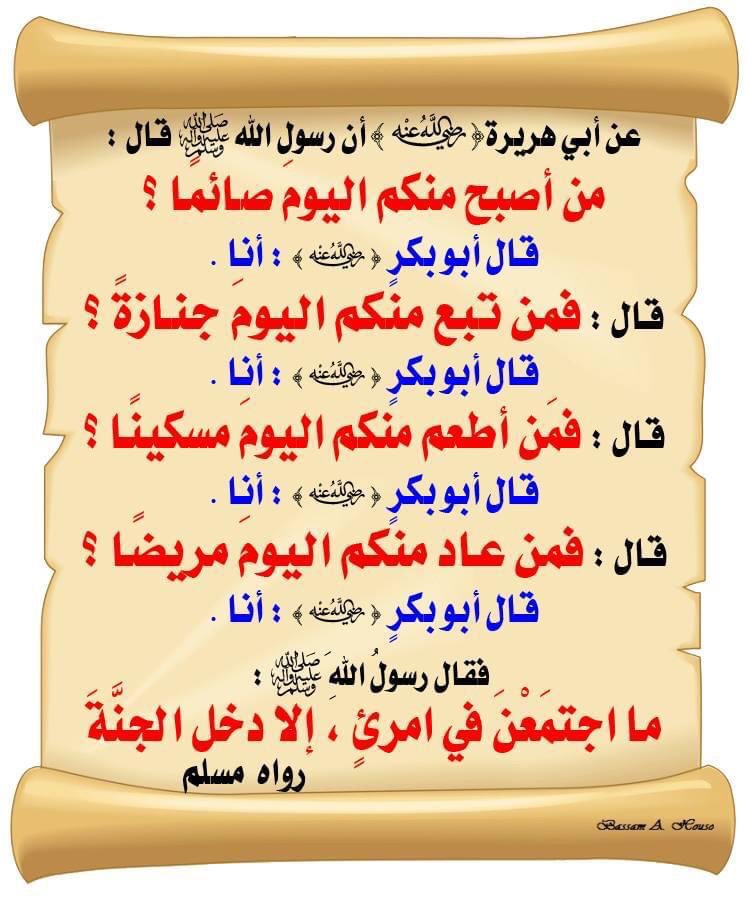 عن أبي هريرة ﴿ رضي الله عنه ﴾ أن رسولَ الله ﷺ قال :
من أصبح منكم اليومَ صائمًا ؟
قال أبو بكرٍ ﴿ رضي الله عنه ﴾ : أنا .
قال : فمن تبع منكم اليومَ جنازةً ؟
قال أبو بكرٍ ﴿ رضي الله عنه ﴾ : أنا .
قال : فمَن أطعم منكم اليومَ مسكينًا ؟
قال أبو بكرٍ ﴿ رضي الله عنه ﴾ : أنا .
قال : فمن عاد منكم اليومَ مريضًا ؟
قال أبو بكرٍ ﴿ رضي الله عنه ﴾ : أنا .
فقال رسولُ اللهِ ﷺ :
ما اجتمَعْنَ في امرئٍ ، إلا دخل الجنَّةَ
رواه مسلم
Bassam A. Houso